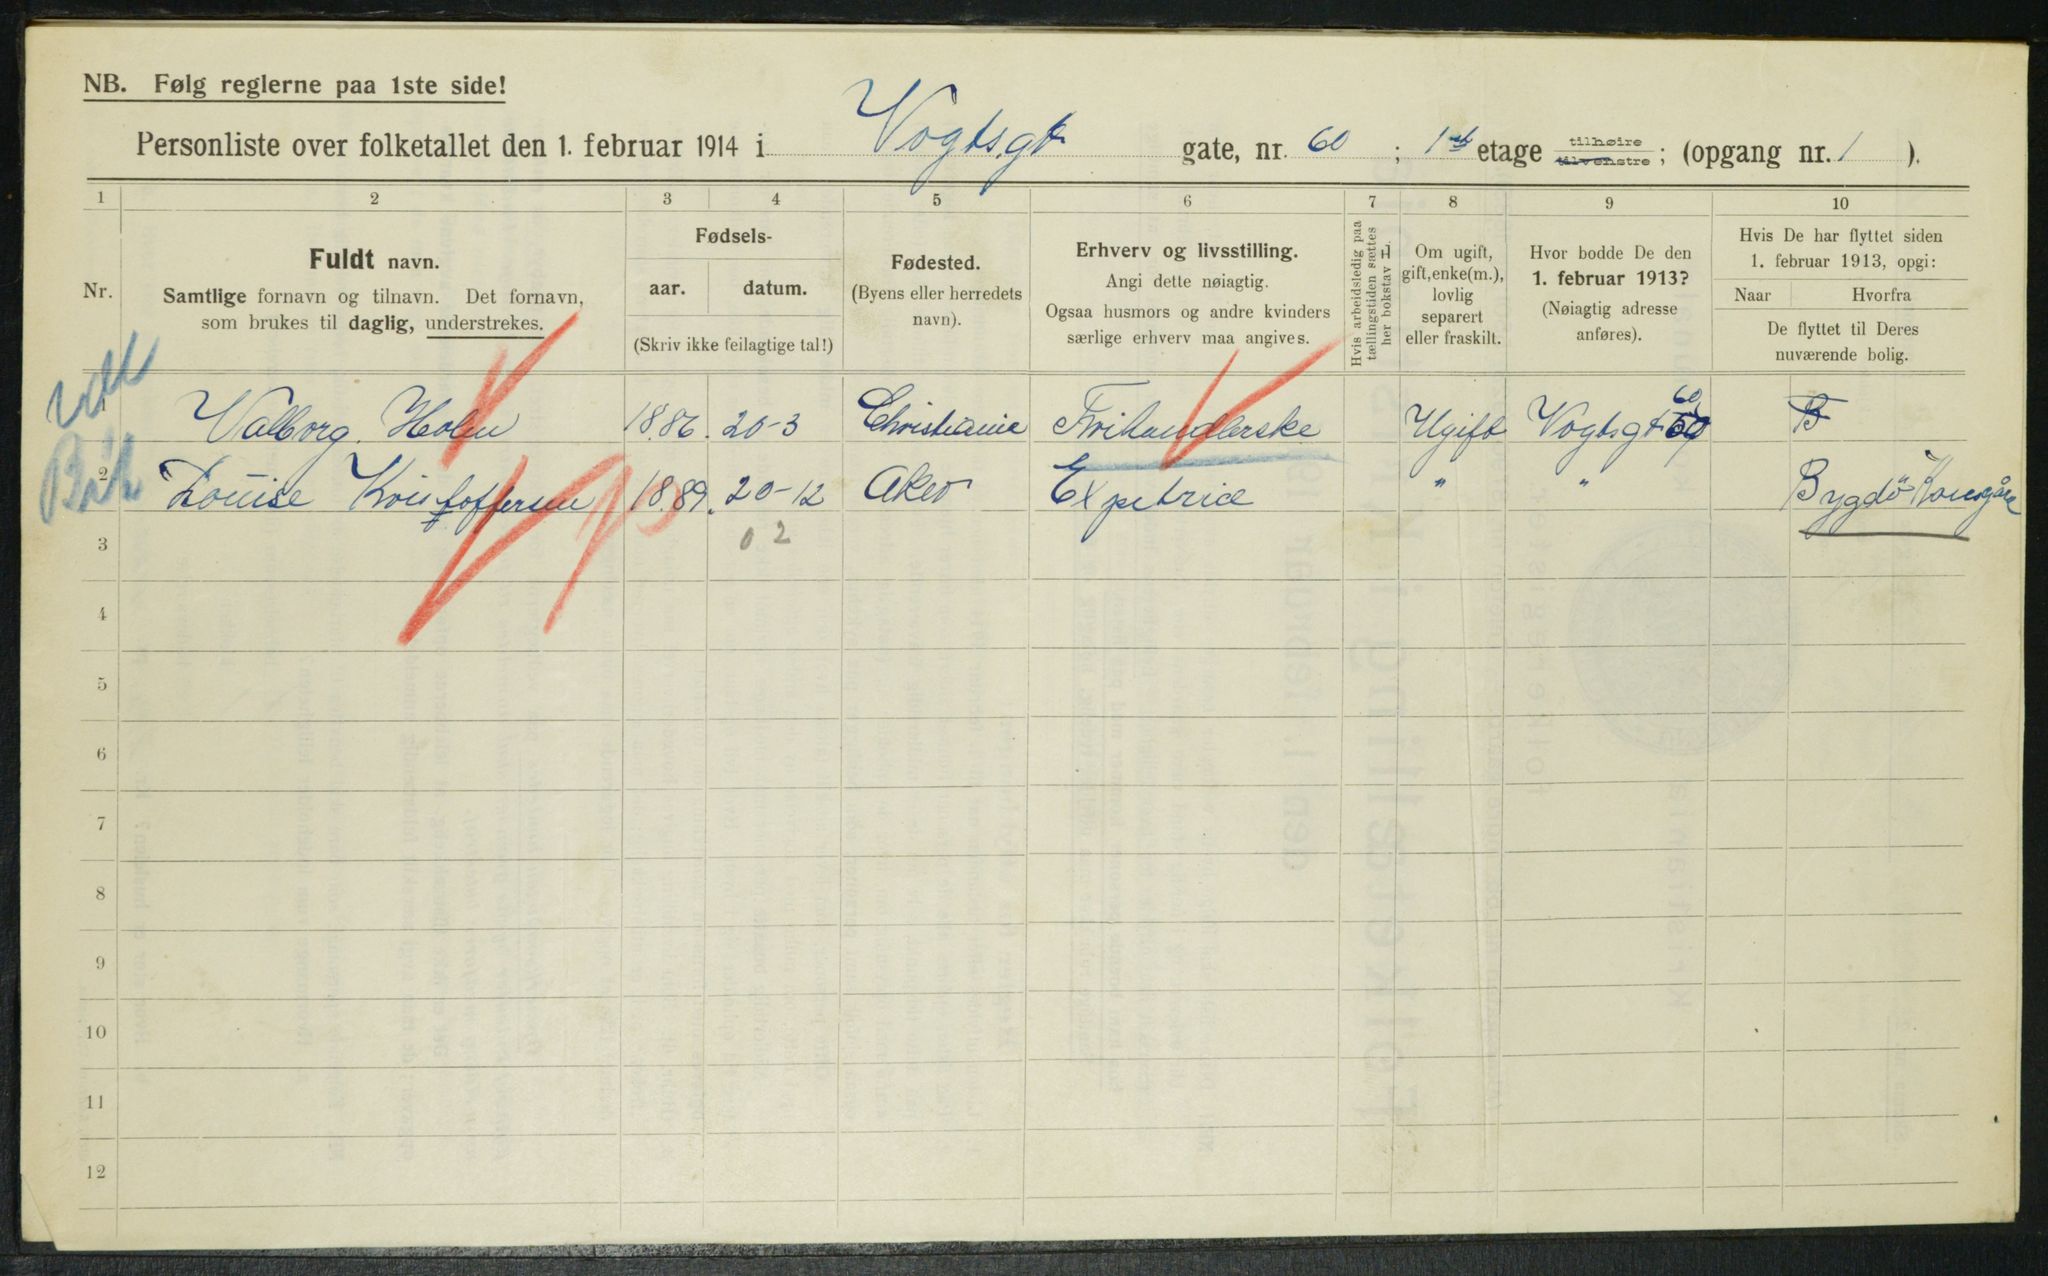 NB. Følg reglerne paa 1ste side!
Personliste over folketallet den 1. februar 1914 i Vogtsgt gate, nr. 60 ; 1ste etage tilhøire tilvenstre ; (opgang nr. 1 ).
1 2 3 4 5 6 7 8 9 10
Nr.
Fuldt navn.
Samtlige fornavn og tilnavn. Det fornavn,
som brukes til daglig, understrekes.
Fødsels-
aar. datum.
(Skriv ikke feilagtige tal!)
Fødested.
(Byens eller herredets
navn).
Erhverv og livsstilling.
Angi dette nøiagtig.
Ogsaa husmors og andre kvinders
særlige erhverv maa angives.
Hvis arbeidsledig paa
tællingstiden sættes
her bokstav L.
Om ugift,
gift, enke(m.),
lovlig
separert
eller fraskilt.
Hvor bodde De den
1. februar 1913?
(Nøiagtig adresse
anføres).
Hvis De har flyttet siden
1. februar 1913, opgi:
Naar Hvorfra
De flyttet til Deres
nuværende bolig.
1 Valborg Holm 1886. 20-3 Christiania Frihandlerske Ugift Vogtsgt 60 B
2 Louise Kristoffersen 1889. 20-12 Aker Expetrice " " Bygdö Konsgård
02
3
4
5
6
7
8
9
10
11
12